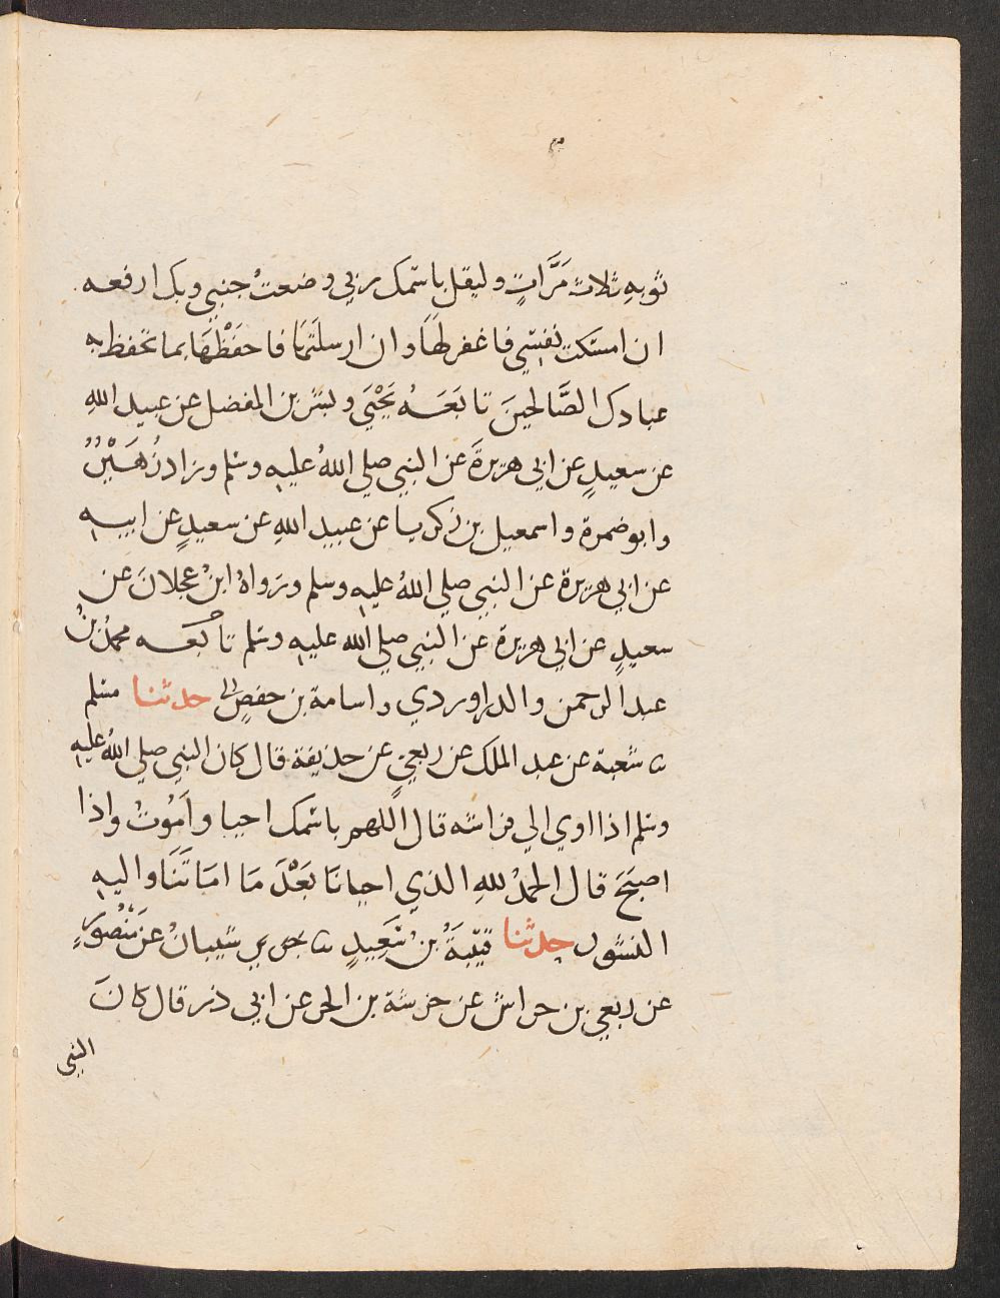 ثوبهِ ثلاث مَرَّاتٍ وليقل باسمك ربي وضعتُ جنبي وبك ارفعه
ان امسكت نفسي فاغفر لها وان ارسلتَها فاحفَظْهَا بما تحفظ به
عبادك الصَّالحينَ تابَعَهُ يَحْيَى وبشر بن المفضل عن عبيد اللهِ
عن سعيدٍ عن ابي هريرةَ عن النبي صلي اللهُ عليهِ وسلم وزاد زُهَيْرٌ
وابو ضمرة واسمعيل بن زكريا عن عبيد اللهِ عن سعيدٍ عن ابيه
عن ابي هريرة عن النبي صلي اللهُ عليهِ وسلم ورَواهُ ابنُ عجلانَ عن
سعيدٍ عن ابي هريرة عن النبي صلي الله عليهِ وسلم تابعه محمدُ بنُ
عبد الرحمن والدراوردي واسامة بن حفصٍ حدثنا مسلم
ثنا شعبة عن عبد الملك عن ربعيٍ عن حذيفة قال كان النبي صلي اللهُ عليهِ
وسلم اذا اوي الي فراشه قال اللهم باسمك احيا وامُوتُ واذا
اصبَحَ قال الحمدُ للهِ الذي احيانَا بَعْدَ مَا امَاتَنَا واليهِ
النشور حدثنا قتيبَةُ بنُ سَعِيدٍ ثنا شيبانُ عَن مَنْصُورٍ
عن ربعي بن حراش عن خرشة بن الحر عن ابي ذر قال كانَ
النبي